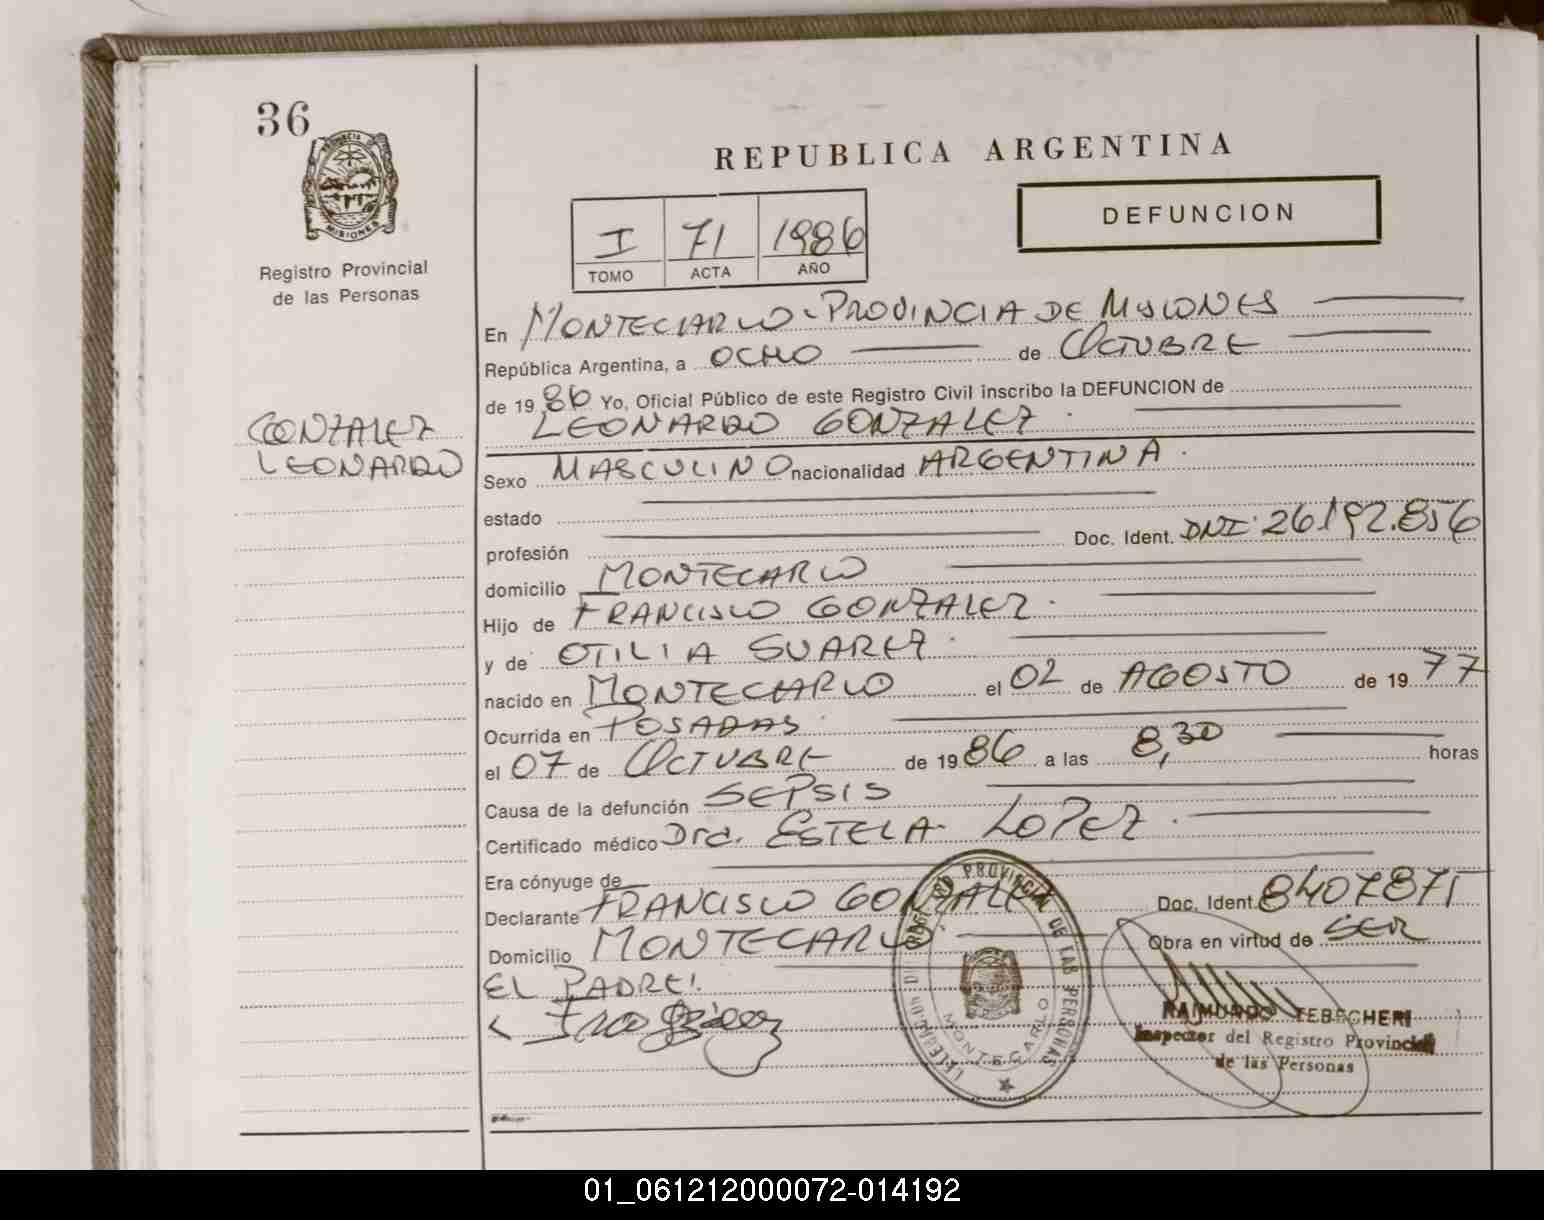 36
PROVINCIA DE
MISIONES
Registro Provincial
de las Personas
REPUBLICA ARGENTINA
DEFUNCION
I 71 1986
TOMO ACTA AÑO
En MONTECARLO - PROVINCIA DE MISIONES
República Argentina, a OCHO de OCTUBRE
de 1986 Yo, Oficial Público de este Registro Civil inscribo la DEFUNCION de
LEONARDO GONZALEZ.
GONZALEZ
LEONARDO
Sexo MASCULINO nacionalidad ARGENTINA.
estado
profesión Doc. Ident. DNI: 26.192.856
domicilio MONTECARLO
Hijo de FRANCISCO GONZALEZ.
y de OTILIA SUAREZ.
nacido en MONTECARLO el 02 de AGOSTO de 1977
Ocurrida en POSADAS.
el 07 de OCTUBRE de 1986 a las 8,30 horas
Causa de la defunción SEPSIS
Certificado médico Dra. ESTELA LOPEZ.
Era cónyuge de
Declarante FRANCISCO GONZALEZ Doc. Ident. 8407871
Domicilio MONTECARLO. Obra en virtud de SER
EL PADRE.
REGISTRO PROVINCIAL DE LAS PERSONAS
MONTECARLO
RAIMUNDO TEBECHERI
Inspector del Registro Provincial
de las Personas
01_061212000072-014192